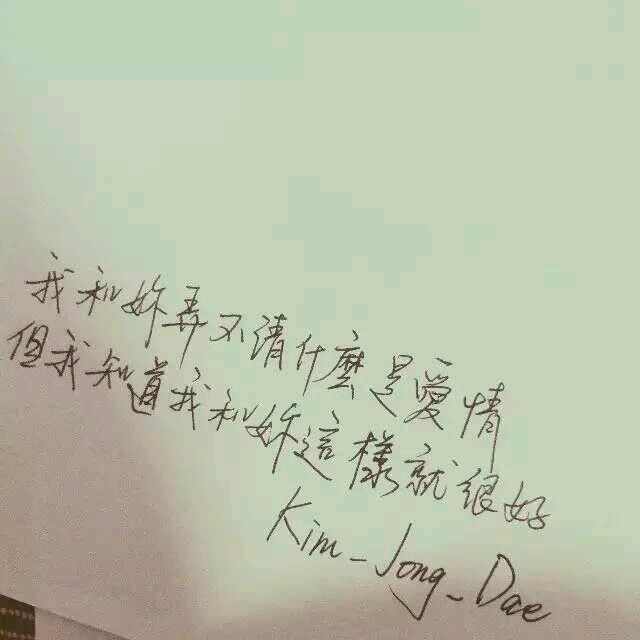 我和妳弄不清什麼是愛情
但我知道我和妳這樣就很好
Kim_Jong_Dae